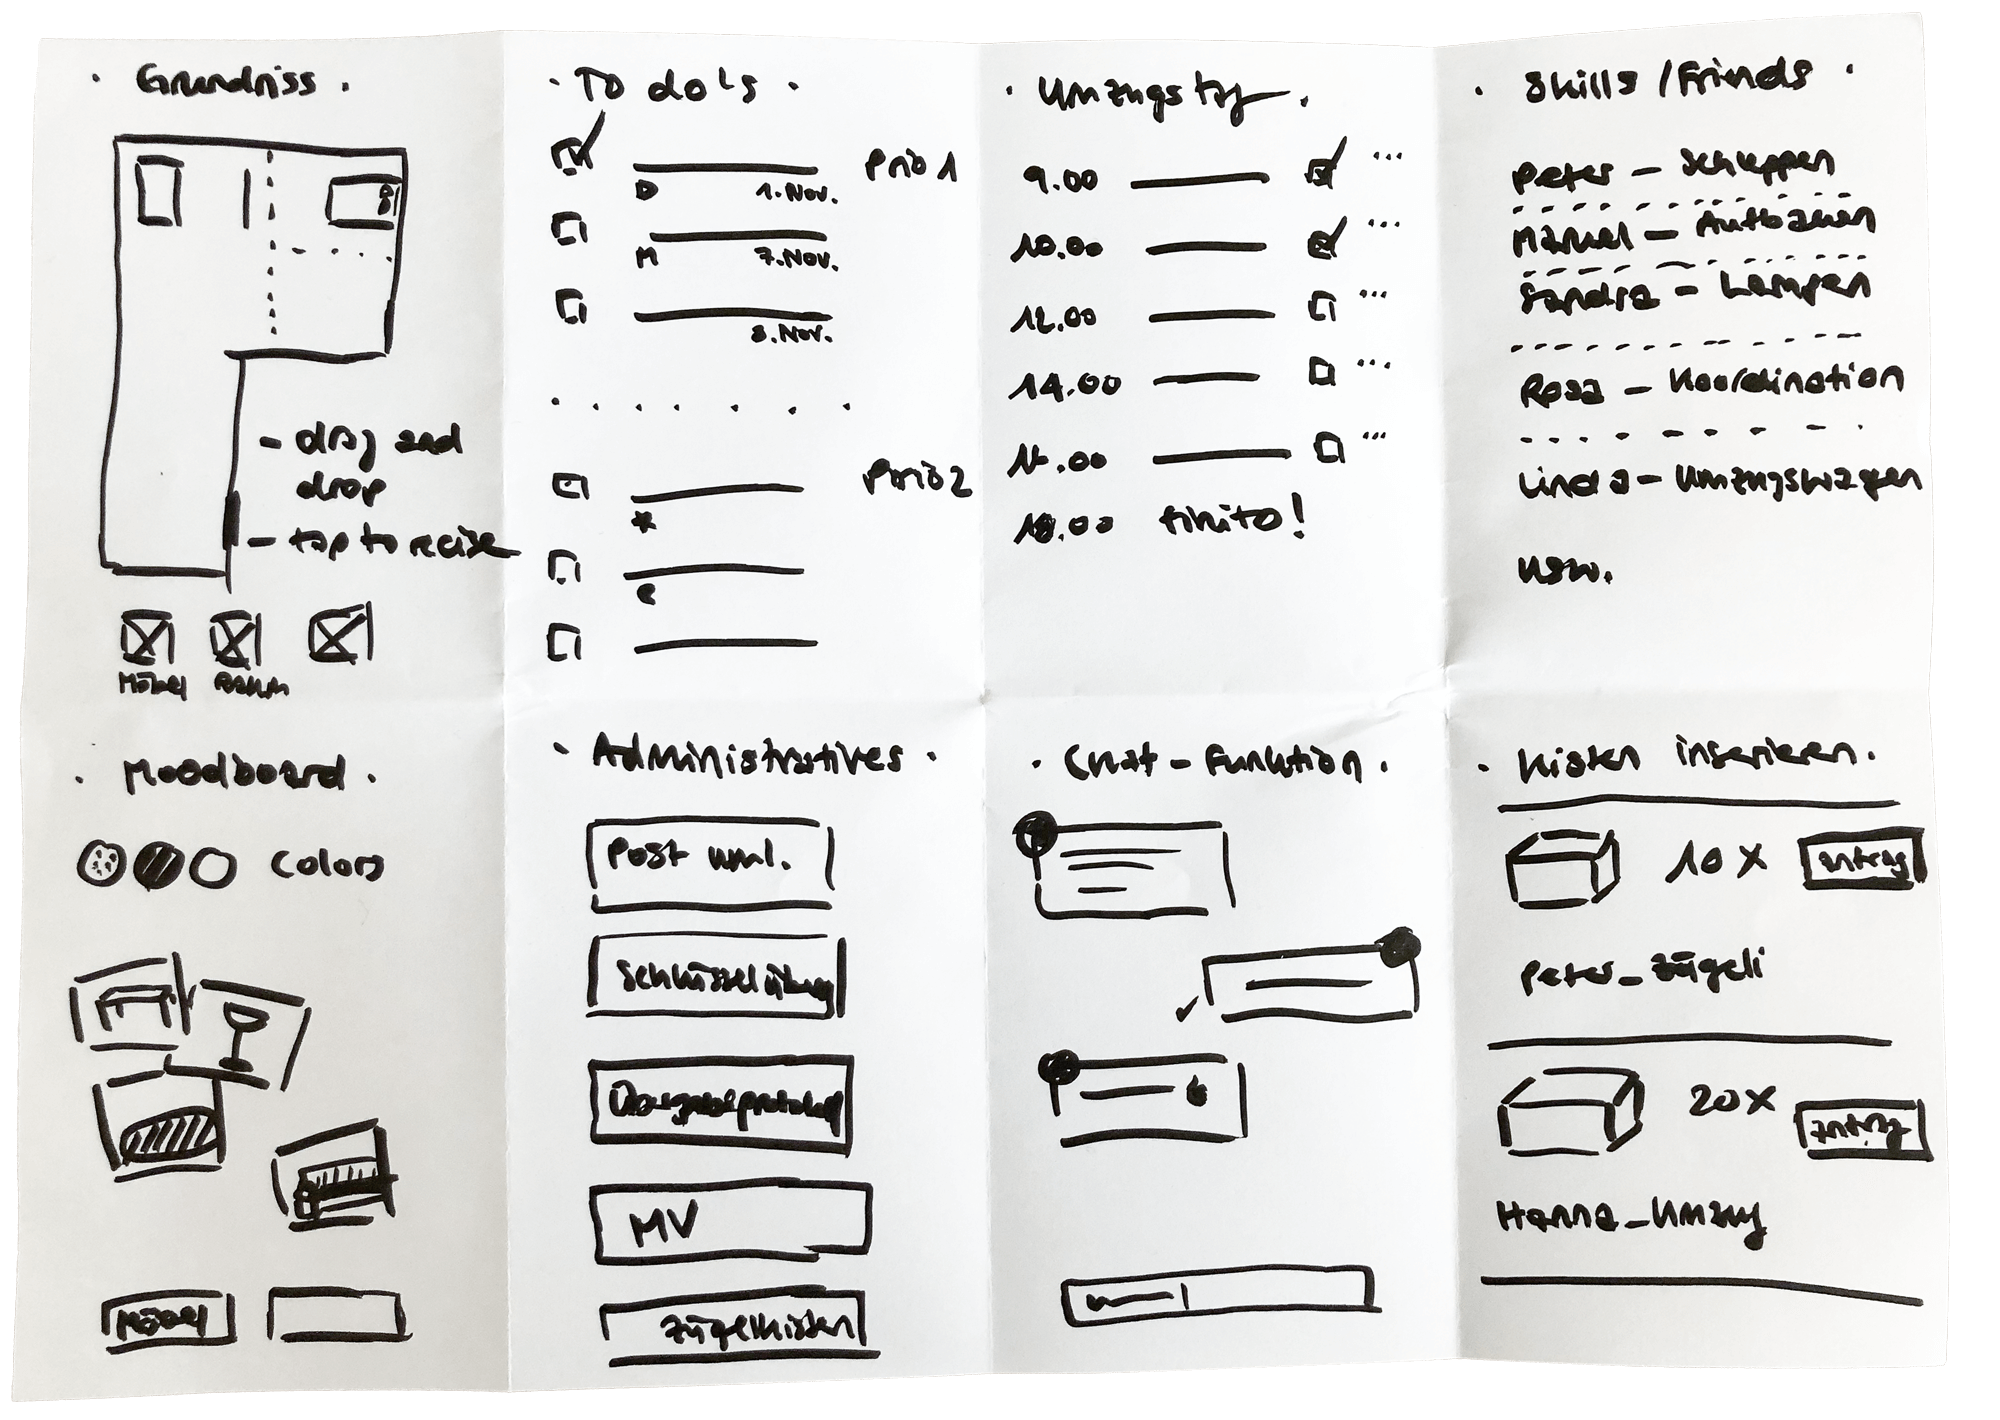 · Grundriss ·
- drag and
drop
- tap to recise
Möbel Raum
· To do's ·
Prio 1
D 1. Nov.
M 7. Nov.
8. Nov.
Prio 2
· Umzugstag ·
9.00 ...
10.00 ...
12.00 ...
14.00 ...
.00 ...
18.00 finito!
· Skills / Friends ·
Peter - Schleppen
Manuel - Aufbauen
Sandra - Lampen
Rosa - Koordination
Linda - Umzugswagen
usw.
· Moodboard ·
Colors
Möbel
· Administratives ·
Post uml.
Schlüsselüberg
Übergabeprotokoll
MV
Zügelkisten
· Chat - Funktion ·
· Kisten inserieren ·
10 x antrag
Peter_zügeli
20 x antrag
Hanna_Umzug